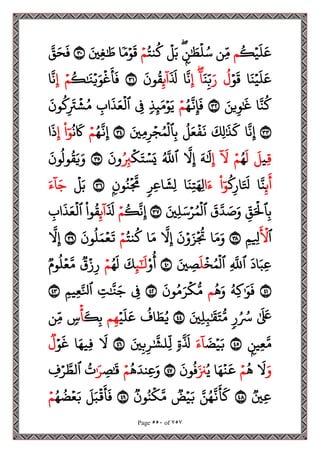 عَلَيْكُم مِّن سُلْطَٰنِۭ ۖ بَلْ كُنتُمْ قَوْمًا طَٰغِينَ ٣٠ فَحَقَّ
عَلَيْنَا قَوْلُ رَبِّنَآ ۖ إِنَّا لَذَآئِقُونَ ٣١ فَأَغْوَيْنَٰكُمْ إِنَّا
كُنَّا غَٰوِينَ ٣٢ فَإِنَّهُمْ يَوْمَئِذٍ فِي ٱلْعَذَابِ مُشْتَرِكُونَ
٣٣ إِنَّا كَذَٰلِكَ نَفْعَلُ بِٱلْمُجْرِمِينَ ٣٤ إِنَّهُمْ كَانُوٓاْ إِذَا
قِيلَ لَهُمْ لَآ إِلَٰهَ إِلَّا ٱللَّهُ يَسْتَكْبِرُونَ ٣٥ وَيَقُولُونَ
أَئِنَّا لَتَارِكُوٓاْ ءَالِهَتِنَا لِشَاعِرٍ مَّجْنُونِۭ ٣٦ بَلْ جَآءَ
بِٱلْحَقِّ وَصَدَّقَ ٱلْمُرْسَلِينَ ٣٧ إِنَّكُمْ لَذَآئِقُواْ ٱلْعَذَابِ
ٱلْأَلِيمِ ٣٨ وَمَا تُجْزَوْنَ إِلَّا مَا كُنتُمْ تَعْمَلُونَ ٣٩ إِلَّا
عِبَادَ ٱللَّهِ ٱلْمُخْلَصِينَ ٤٠ أُوْلَٰٓئِكَ لَهُمْ رِزْقٌ مَّعْلُومٌ
٤١ فَوَٰكِهُ وَهُم مُّكْرَمُونَ ٤٢ فِي جَنَّٰتِ ٱلنَّعِيمِ ٤٣
عَلَىٰ سُرُرٍ مُّتَقَٰبِلِينَ ٤٤ يُطَافُ عَلَيْهِم بِكَأْسٍ مِّن
مَّعِينِۭ ٤٥ بَيْضَآءَ لَذَّةٍ لِّلشَّٰرِبِينَ ٤٦ لَا فِيهَا غَوْلٌ
وَلَا هُمْ عَنْهَا يُنزَفُونَ ٤٧ وَعِندَهُمْ قَٰصِرَٰتُ ٱلطَّرْفِ
عِينٌ ٤٨ كَأَنَّهُنَّ بَيْضٌ مَّكْنُونٌ ٤٩ فَأَقْبَلَ بَعْضُهُمْ
Page ٥٥٠ of ٧٥٧